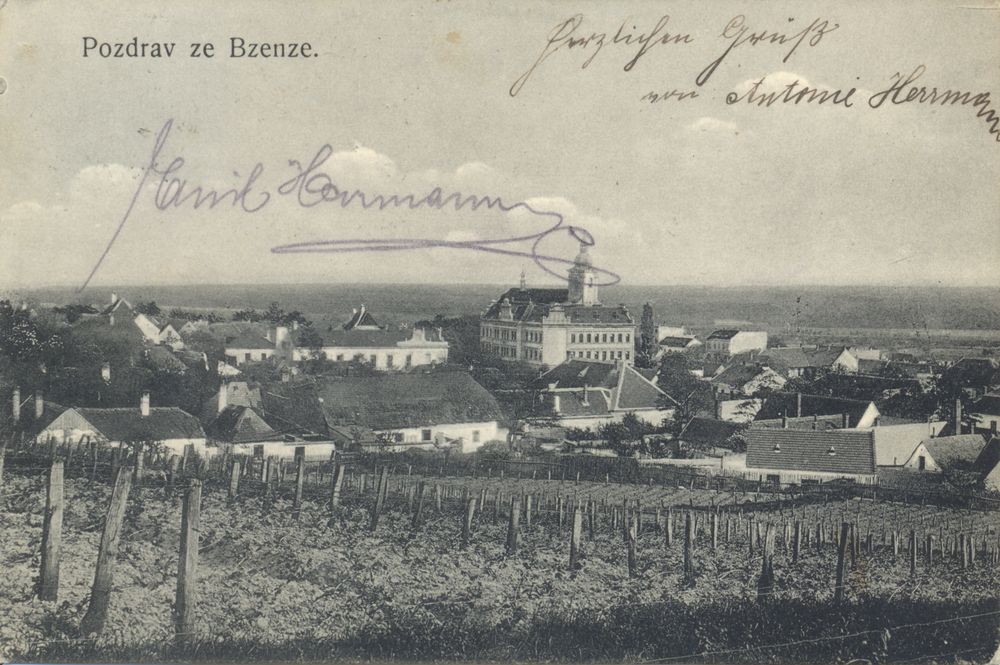 Pozdrav ze Bzenze.
Herzlichen Gruß
von Antonie Herrmann
Emil Herrmann